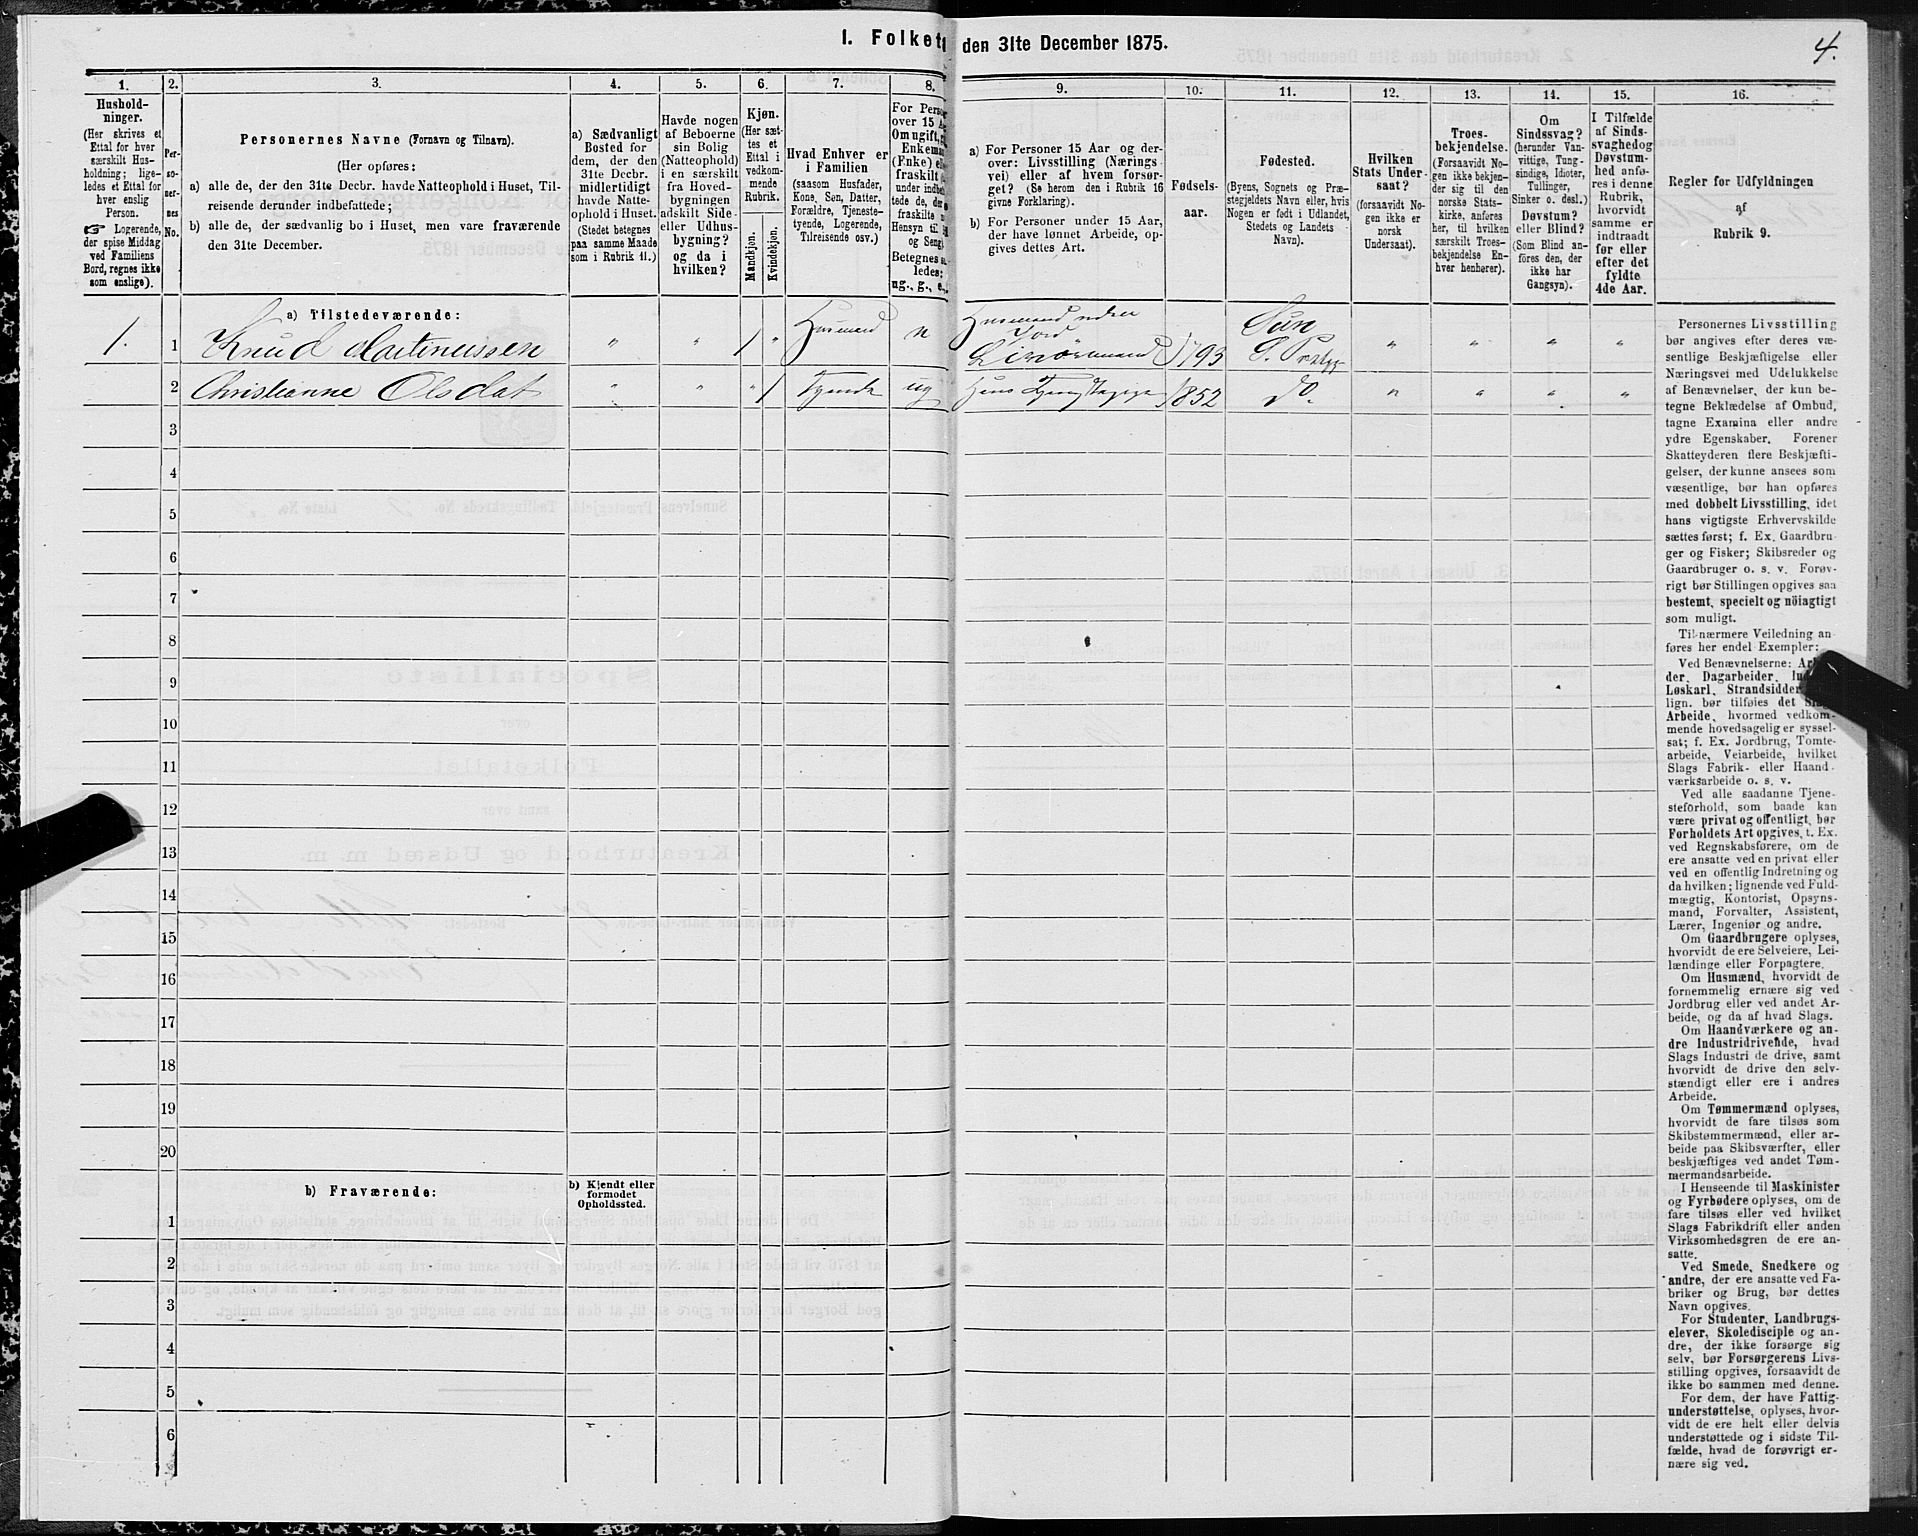 I. Folket den 31te December 1875.
4.
1. 2. 3. 4. 5. 6. 7. 8. 9. 10. 11. 12. 13. 14. 15. 16.
Hushold-
ninger.
(Her skrives et
Ettal for hver
særskilt Hus-
holdning; lige-
ledes et Ettal for
hver enslig
Person.
Logerende,
der spise Middag
ved Familiens
Bord, regnes ikke
som enslige).
Per-
so-
ner-
nes
No.
Personernes Navne (Fornavn og Tilnavn).
(Her opføres:
a) alle de, der den 31te Decbr. havde Natteophold i Huset, Til-
reisende derunder indbefattede;
b) alle de, der sædvanlig bo i Huset, men vare fraværende
den 31te December.
a) Sædvanligt
Bosted for
dem, der den
31te Decbr.
midlertidigt
havde Natte-
ophold i Huset.
(Stedet betegnes
paa samme Maade
som i Rubrik 11.)
Havde nogen
af Beboerne
sin Bolig
(Natteophold)
i en særskilt
fra Hoved-
bygningen
adskilt Side-
eller Udhus-
bygning?
og da i
hvilken?
Kjøn.
(Her sæt-
tes et
Ettal i
vedkom-
mende
Rubrik.
Mandkjøn.
Kvindekjøn.
Hvad Enhver er
i Familien
(saasom Husfader,
Kone, Søn, Datter,
Forældre, Tjeneste-
tyende, Logerende,
Tilreisende osv.)
For Perso
over 15 A
Om ugift, g
Enkeman
(Enke) el
fraskilt (
under indbe
tede de, der
fraskilte
Hensyn til
og Seng
Betegnes s
ledes:
ug., g., e.,
a) For Personer 15 Aar og der-
over: Livsstilling (Nærings
vei) eller af hvem forsør-
get? (Se herom den i Rubrik 16
givne Forklaring).
b) For Personer under 15 Aar,
der have lønnet Arbeide, op-
gives dettes Art.
Fødsels-
aar.
Fødested.
(Byens, Sognets og Præ-
stegjeldets Navn eller, hvis
Nogen er født i Udlandet,
Stedets og Landets
Navn).
Hvilken
Stats Under-
saat?
(forsaavidt No-
gen ikke er
norsk
Undersaat).
Troes-
bekjendelse.
(Forsaavidt No-
gen ikke bekjen-
der sig til den
norske Stats-
kirke, anføres
her, til hvilken
særskilt Troes-
bekjendelse En-
hver henhører).
Om
Sindssvag?
(herunder Van-
vittige, Tung-
sindige, Idioter,
Tullinger,
Sinker o. desl.)
Døvstum?
eller Blind?
(Som Blind an-
føres den, der
ikke har
Gangsyn).
I Tilfælde
af Sinds-
svaghed og
Døvstum-
hed anfø-
res i denne
Rubrik,
hvorvidt
samme er
indtraadt
før eller
efter det
fyldte
4de Aar.
Regler for Udfyldningen
af
Rubrik 9.
a) Tilstedeværende:
1. 1 Knud Martinussen " " 1 " Husmand Husmand uden Jord 1793 Sun S. Prstgj " " " "
2 Christianne Olsdat " " " 1 Tyende ug 1852 do. " " " "
3
4
5
6
7
8
9
10
11
12
13
14
15
16
17
18
19
20
b) Fraværende:
b) Kjendt eller
formodet
Opholdssted.
1
2
3
4
5
6
Personernes Livsstilling
bør angives efter deres væ-
sentlige Beskjæftigelse eller
Næringsvei med Udelukkelse
af Benævnelser, der kun be-
tegne Beklædelse af Ombud,
tagne Examina eller andre
ydre Egenskaber. Forener
Skatteyderen flere Beskjæfti-
gelser, der kunne ansees som
væsentlige, bør han opføres
med dobbelt Livsstilling, idet
hans vigtigste Erhvervskilde
sættes først; f. Ex. Gaardbru-
ger og Fisker; Skibsreder og
Gaardbruger o. s. v. Forøv-
rigt bør Stillingen opgives saa
bestemt, specielt og nöiagtigt
som muligt.
Til nærmere Veiledning an-
føres her endel Exempler:
Ved Benævnelserne: Ar
der, Dagarbeider, In
Løskarl, Strandsidder
lign. bør tilføies det Slag
Arbeide, hvormed vedkom-
mende hovedsagelig er syssel-
sat; f. Ex. Jordbrug, Tomte-
arbeide, Veiarbeide, hvilket
Slags Fabrik- eller Haand-
værksarbeide o. s. v.
Ved alle saadanne Tjene-
steforhold, som baade kan
være privat og offentligt, bør
Forholdets Art opgives, t. Ex.
ved Regnskabsførere, om de
ere ansatte ved en privat eller
ved en offentlig Indretning og
da hvilken; lignende ved Fuld-
mægtig, Kontorist, Opsyns-
mand, Forvalter, Assistent,
Lærer, Ingeniør og andre.
Om Gaardbrugere oplyses,
hvorvidt de ere Selveiere, Lei-
lændinge eller Forpagtere.
Om Husmænd, hvorvidt de
fornemmelig ernære sig ved
Jordbrug eller ved andet Ar-
beide, og da af hvad Slags.
Om Haandværkere og an-
dre Industridrivende, hvad
Slags Industri de drive, samt
hvorvidt de drive den selv-
stændigt eller ere i andres
Arbeide.
Om Tømmermænd oplyses,
hvorvidt de fare tilsøs som
Skibstømmermænd, eller ar-
beide paa Skibsværfter, eller
beskjæftiges ved andet Tøm-
mermandsarbeide.
I Henseende til Maskinister
og Fyrbødere oplyses, om de
fare tilsøs eller ved hvilket
Slags Fabrikdrift eller anden
Virksomhedsgren de ere an-
satte.
Ved Smede, Snedkere og
andre, der ere ansatte ved Fa-
briker og Brug, bør dettes
Navn opgives.
For Studenter, Landbrugs-
elever, Skoledisciple og an-
dre, der ikke forsørge sig
selv, bør Forsørgerens Livs-
stilling opgives, forsaavidt de
ikke bo sammen med denne.
For dem, der have Fattig-
understøttelse, oplyses, hvor-
vidt de ere helt eller delvis
understøttede og i sidste Til-
fælde, hvad de forøvrigt er-
nære sig ved.